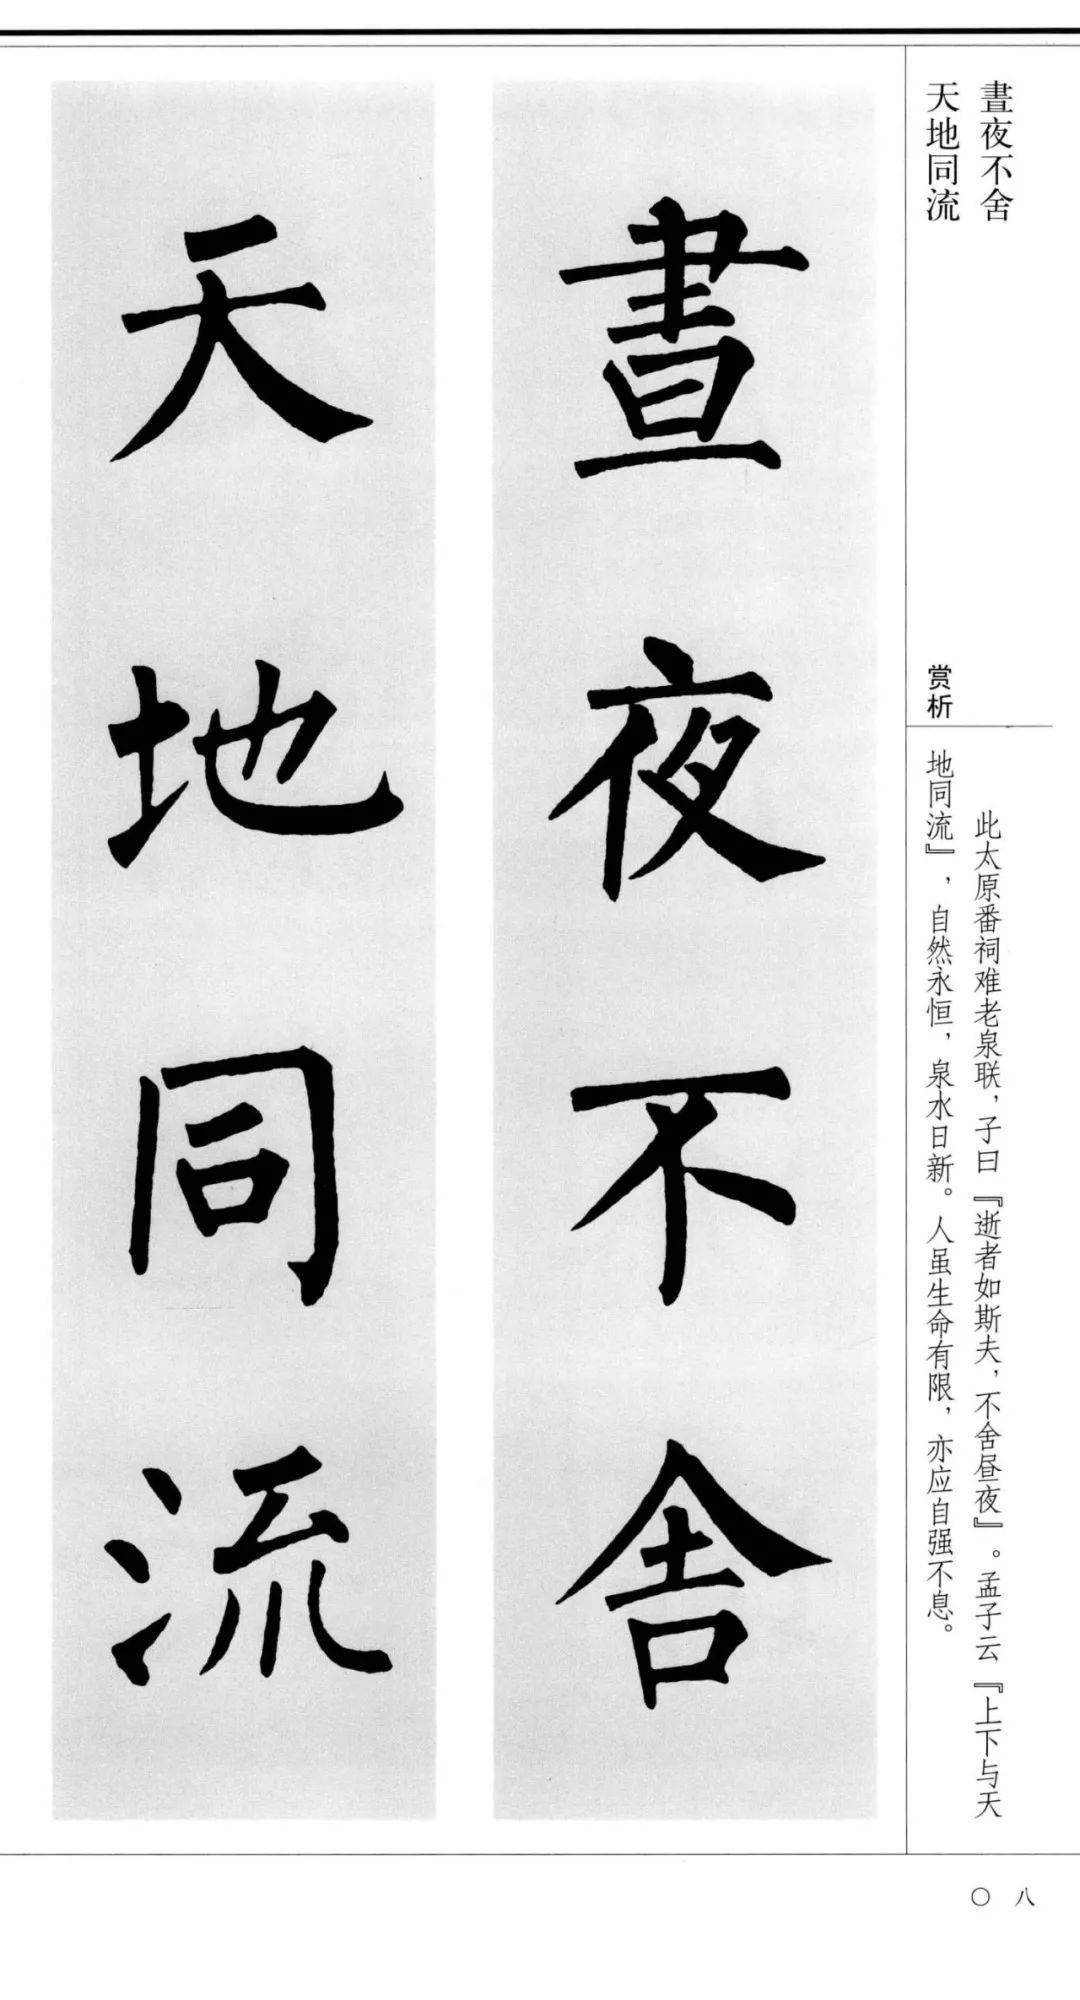 晝夜不舍
天地同流
赏析
此太原番祠难老泉联，子曰『逝者如斯夫，不舍昼夜』。孟子云『上下与天
地同流』，自然永恒，泉水日新。人虽生命有限，亦应自强不息。
晝夜不舍
天地同流
〇八